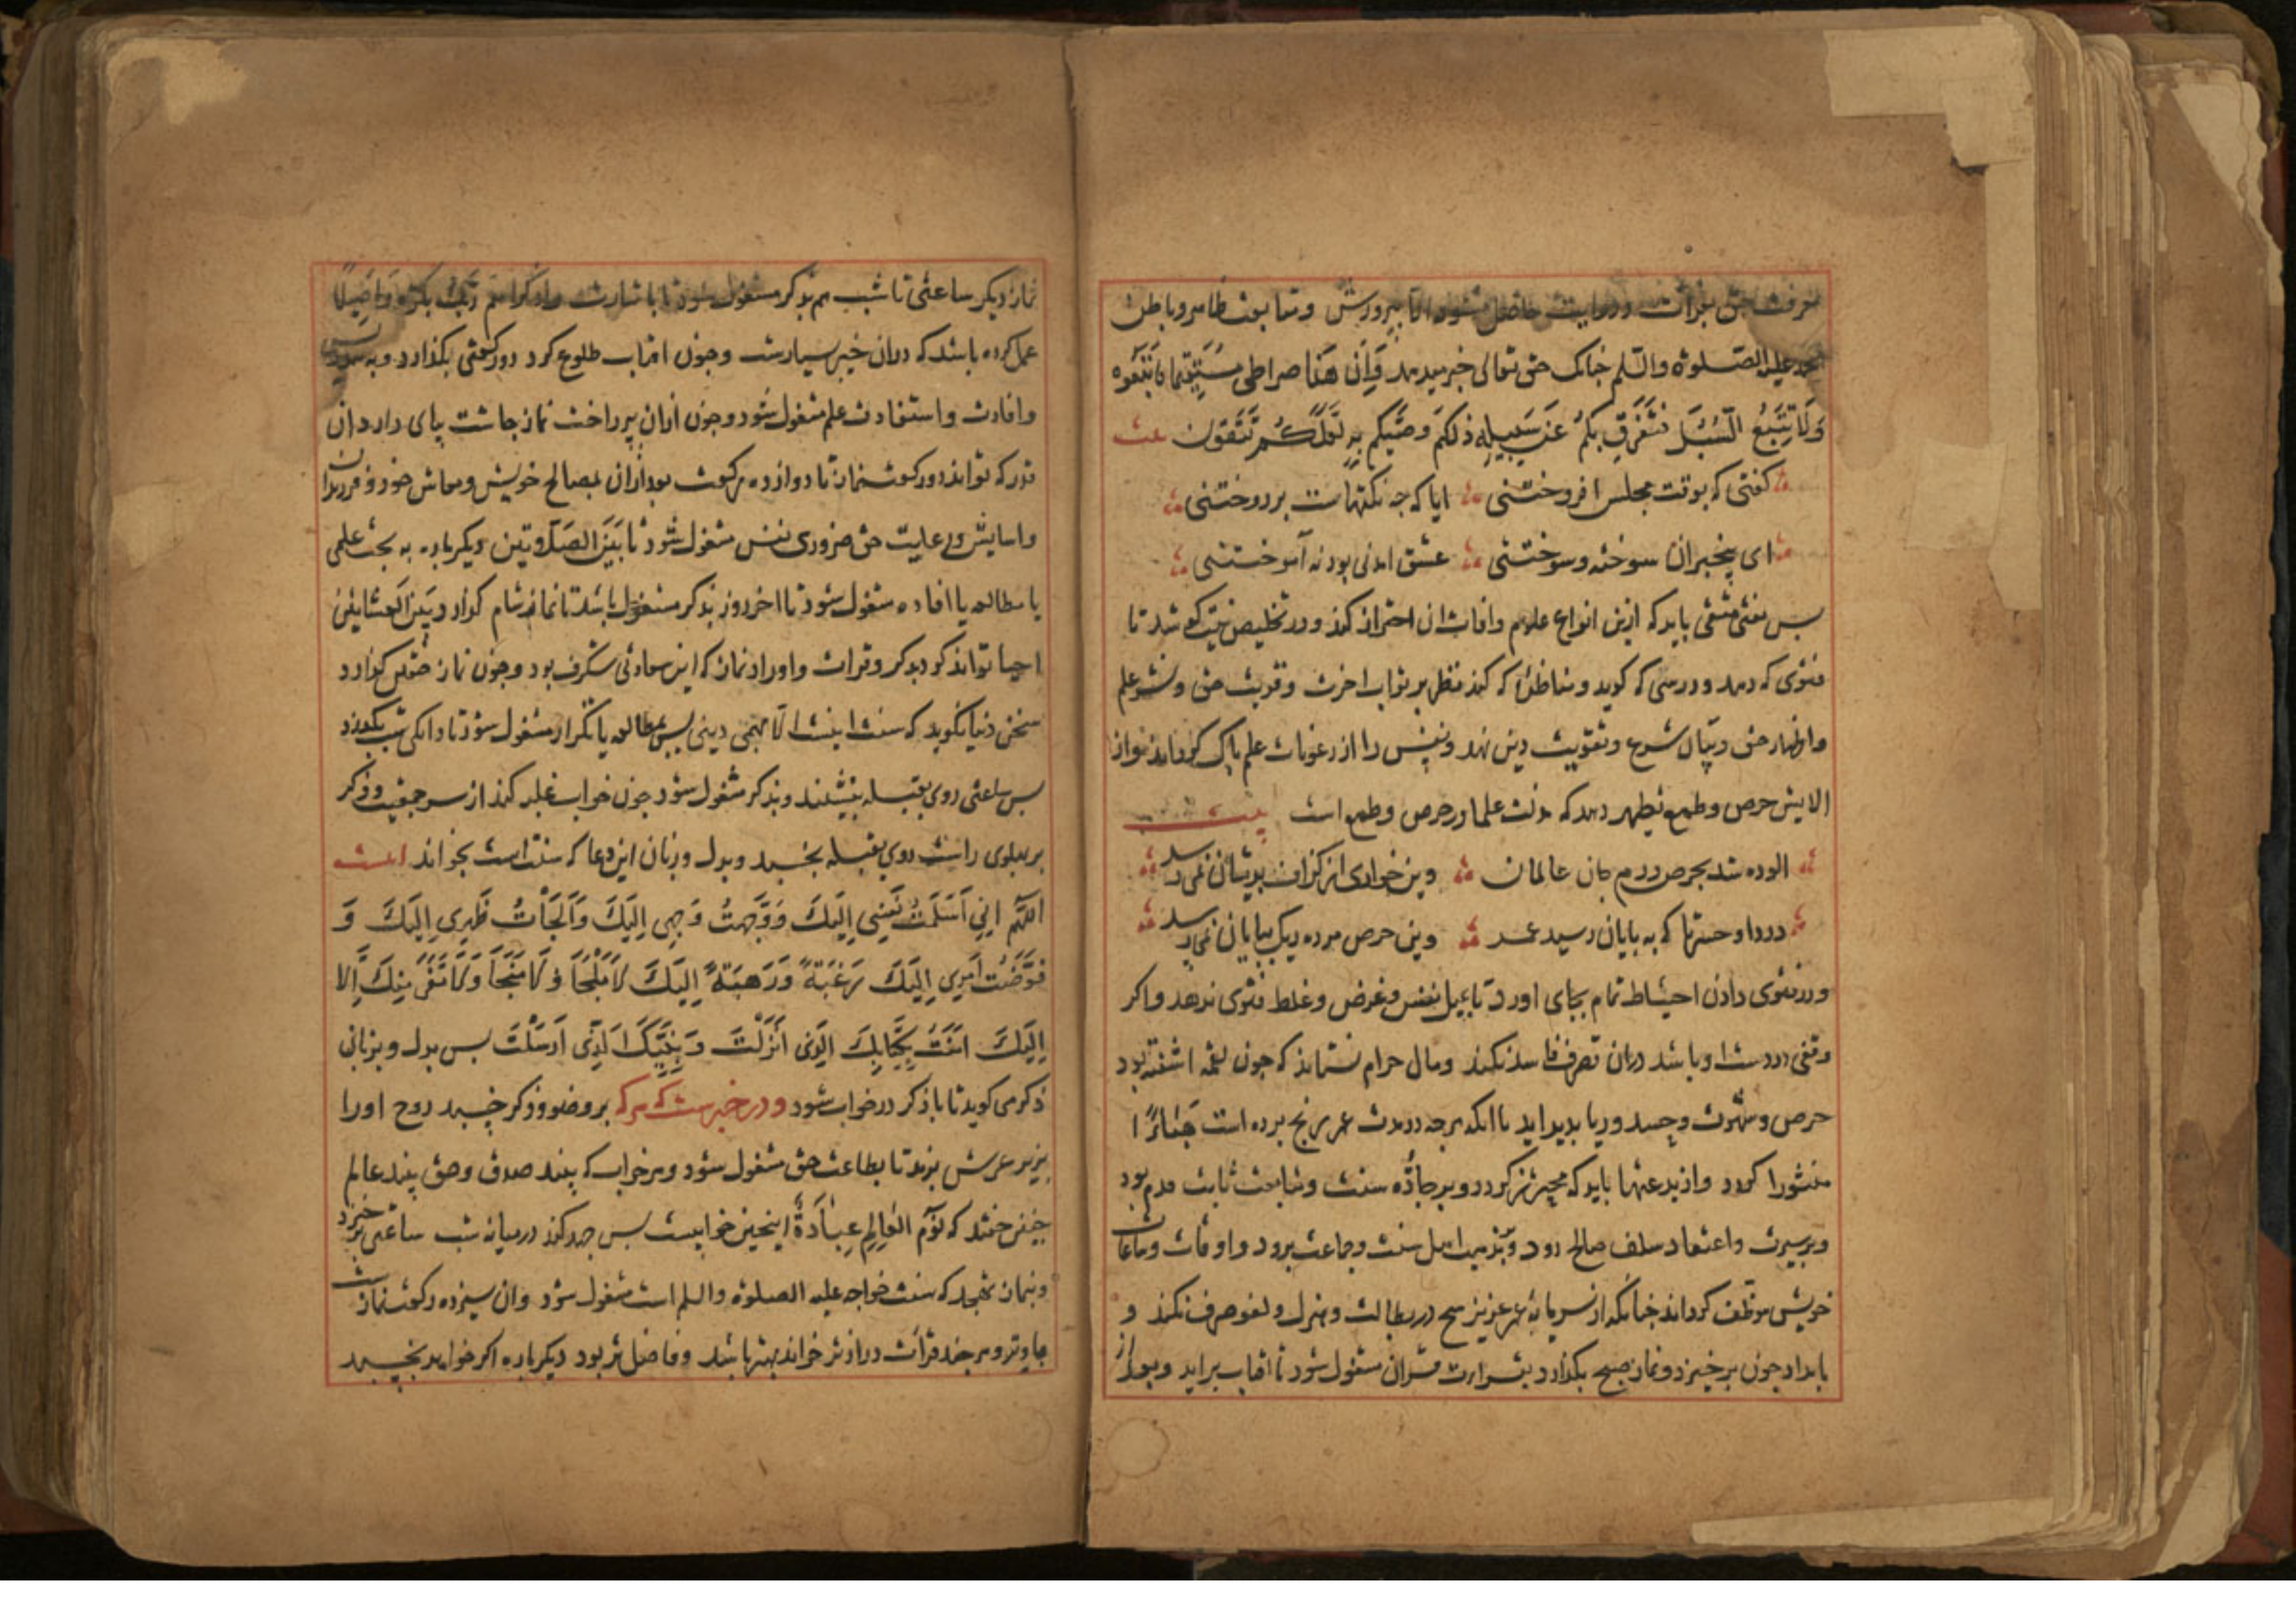 معرفت حق بقرائت و روایت حاصل نشود الا بپرورش و متابعت ظاهر و باطن
محمد علیه الصلوة والسلم چنانک حق تعالی خبر میدهد وَاَنَّ هَذَا صراطی مُسْتَقِیمًا فَاتَّبِعُوهُ
وَلَا تَتَّبِعُوا السُّبُلَ فَتَفَرَّقَ بِکُمْ عَنْ سَبِیلِهِ ذَلِکُمْ وَصَّیکُم بِهِ لَعَلَّکُمْ تَتَّقُون
کفتی که بوقت مجلس افروختنی ایا که چه نکتهاست بردوختنی
ای بیخبران سوخته و سوختنی عشق امدنی بود نه آموختنی
بس مفتی متقی باید که ازین انواع علوم و افات ان احتراز کند و در تخلیص نیت کوشد تا
فتوی که دهد و درسی که کوید و مناظره که کند نظر بر ثواب اخرت و قربت حق و نشر علم
و اظهار حق و بیان شرع و تقویت دین نهد و نفس را از رعونات علم باک کرداند و از
الایش حرص و طمع تطهیر دهد که مذلت علما در حرص و طمع است بیت
الوده شد بحرص درم جان عالمان وین خواری از کزاف بدیشان نمی‌رسد
دردا و حسرتا که به بایان رسید عمر وین حرص مرده ریک ببایان نمی‌رسد
و در فتوی دادن احتیاط تمام بجای اورد تا بمیل نفس و غرض و غلط فتوی ندهد و اکر
وقفی در دست او باشد دران تصرف فاسد نکند و مال حرام نستاند که چون لقمه اشفته بود
حرص و شهوت و حسد و ریا بدید اید تا انکه هرچه در مدت عمر رنج برده است هَبَاءً ا
منثورا کردد و از بدعتها باید که محترز کردد و بر جادّه سنت و متابعت ثابت قدم بود
و بر سیرت و اعتقاد سلف صالح رود و بمذهب اهل سنت و جماعت برود و اوقات و ساعات
خویش موظف کرداند چنانکه از سرمایه عمر عزیز هیچ در بطالت و هزل و لغو صرف نکند و
بامداد چون برخیزد و نماز صبح بکذارد بقراءت قران مشغول شود تا افتاب براید و بعد از
نماز دیکر ساعتی تا شب هم بذکر مشغول شود تا باشارت واذکر اسم رَبِّکَ بُکْرَةً وَاَصِیلًا
عمل کرده باشد که دران خیر بسیارست و چون افتاب طلوع کرد دو رکعتی بکذارد و به
و افادت و استفادت علم مشغول شود و چون ازان پرداخت نماز چاشت بپای دارد ان
قدر که تواند دو رکعت نماز تا دوازده رکعت بعد ازان بمصالح خویش و معاش خود و فرزندان
و اسایش و رعایت حق ضروری نفس مشغول شود تا بَیْنَ الصَلَاوتین دیکرباره به بحث علمی
یا مطالعه یا افاده مشغول شود تا اخر روز بذکر مشغول باشد تا نماز شام کزارد و بَینَ الْعِشَایَین
احیا تواند کرد بذکر و قرات و اوراد نماز که این سعادتی شکرف بود و چون نماز خفتن کزارد
سخن دنیا نکوید که سنت اینست الا مهمی دینی بس بمطالعه یا تکرار مشغول شود تا دانکی شب بکذرد
بس ساعتی روی بقبله بنشیند و بذکر مشغول شود چون خواب غلبه کند از سر جمعیت و ذکر
بر بهلوی راست روی بقبله بخسبد و بدل و زبان این دعا که سنت است بخواند اینست
اللهُمَّ اِنِّی اَسْلَمْتُ نَفْسِی اِلَیْکَ وَوَجَّهْتُ وَجْهِی اِلَیْکَ وَاَلْجَأْتُ ظَهْرِی اِلَیْکَ وَ
فَوَّضْتُ اَمْرِی اِلَیْکَ رَغْبَةً وَرَهْبَةً اِلَیْکَ لَا مَلْجَأَ وَلَا مَنْجَأَ وَلَا مَفَرَّ مِنْکَ اِلَّا
اِلَیْکَ امَنْتُ بِکِتَابِکَ الَّذِی اَنْزَلْتَ وَبِنَبِیِّکَ الَّذِی اَرْسَلْتَ بس بدل و بزبانی
ذکر می کوید تا با ذکر در خواب شود و در خبرست که هرکه بر وضو و ذکر خسبد روح او را
بزیر عرش برند تا بطاعت حق مشغول شود و هر خواب که بیند صدق و حق بیند عالم
چنین خسبد که نَوْمُ العَالِمِ عِبَادَةٌ اینچنین خوابیست بس جهد کند در میانه شب ساعتی برخیزد
و بنماز تهجد که سنت خواجه علیه الصلوة والسلم است مشغول شود وان سیزده رکعت نمازست
با وتر و هرچند قرائت دراز تر خواند بهتر باشد و فاضل تر بود دیکرباره اکر خواهد بخسبد